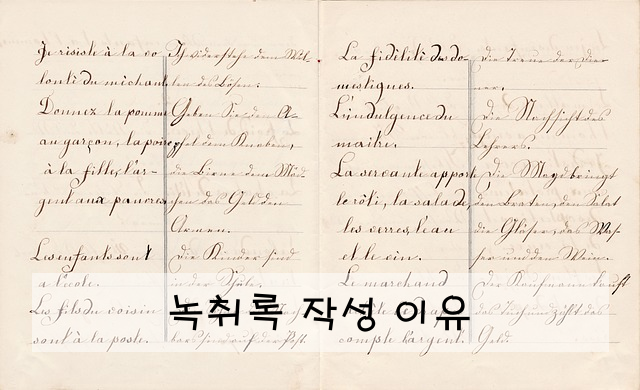 Je résiste à la vo-
lonté du méchant
Donnez la pomme
au garçon, la poire
à la fille, l'ar-
gent aux pauvres
Les enfants sont
a l'école.
Les fils du voisin
sont à la poste.
Ich widerstehe dem Wil-
len des Bösen.
Geben Sie den A-
pfel dem Knaben,
die Birne dem Mäd-
chen das Geld den
Armen.
Die Kinder sind
in der Schule.
sind auf der Post.
La fidélité des do-
mestiques.
L'indulgence du
maître.
La servante apporte
le rôti, la salade,
les verres, l'eau
et le vin.
Le marchand
compte l'argent.
Die Treue der Die-
ner.
Die Nachsicht des
Lehrers.
Die Magd bringt
den Braten, den Salat
die Gläser, das Was-
ser und den Wein.
Der Kaufmann
das Tuch und zählt das
Geld.
녹취록 작성 이유